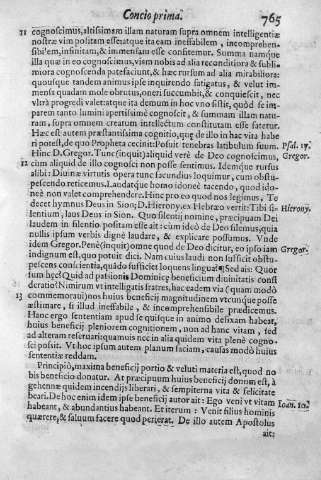 Concio prima. 765
11 cognoscimus, altissimam illam naturam supra omnem intelligentiæ
nostræ vim positam esse: atque ita eam ineffabilem, incomprehen-
sibilem, infinitam, & immensam esse confitemur. Summa namque
illa quæ in eo cognoscimus, viam nobis ad alia reconditiora & subli-
miora cognoscenda patefaciunt, & hæc rursum ad alia mirabiliora:
quousque tandem animus ipse inquirendo fatigatus, & velut im-
mensa quadam mole obrutus, oneri succumbit, & conquiescit, nec
vltrà progredi valet: atque ita demum in hoc vno sistit, quòd se im-
parem tanto lumini apertissimè cognoscit, & summam illam natu-
ram, supra omnem creatum intellectum constitutam esse fatetur.
Hæc est autem præstantissima cognitio, quæ de illo in hac vita habe
ri potest, de quo Propheta cecinit: Posuit tenebras latibulum suum. Psal. 17.
Hinc D. Gregor. Tunc (inquit) aliquid verè de Deo cognoscimus, Gregor.
12 cùm aliquid de illo cognosci non posse sentimus. Idemque rursus
alibi: Diuinæ virtutis opera tunc facundius loquimur, cum obstu-
pescendo reticemus. Laudatque homo idoneè tacendo, quod ido-
neè non valet comprehendere. Hinc pro eo quod nos legimus, Te
decet hymnus Deus in Sion; D. Hierony. ex Hebræo vertit: Tibi si- Hierony.
lentium, laus Deus in Sion. Quo silentij nomine, præcipuam Dei
laudem in silentio positam esse ait: cùm ideò de Deo silemus, quia
nullis ipsum verbis dignè laudare, & explicare possumus. Vnde
idem Gregor. Penè (inquit) omne quod de Deo dicitur, eo ipso iam Gregor.
indignum est, quo potuit dici. Nam cuius laudi non sufficit obstu-
pescens conscientia, quádo sufficiet loquens lingua? ¶ Sed ais: Quor
sum hęc? Quid ad passionis Dominicę beneficium diuinitatis consi
deratio? Nimirum vt intelligatis fratres, hac eadem via (quam modò
13 commemoraui) nos huius beneficij magnitudinem vtcunque posse
æstimare, si illud ineffabile, & incomprehensibile prædicemus.
Hanc ergo sententiam apud se quisque in animo defixam habeat,
huius beneficij pleniorem cognitionem, non ad hanc vitam, sed
ad alteram reseruari: quam vis nec in alia quidem vita plenè cogno-
sci possit. Vt hoc ipsum autem planum faciam, causas modò huius
sententiæ reddam.
Principiò, maxima beneficij portio & veluti materia est, quod no
bis beneficio donatur. At præcipuum huius beneficij donum est, à
gehennæ quidem incendijs liberari, & sempiterna vita & felicitate
beari. De hoc enim idem ipse beneficij autor ait: Ego veni vt vitam Ioan. 10.
habeant, & abundantius habeant. Et iterum: Venit filius hominis
quærere, & saluum facere quod perierat. De illo autem Apostolus
ait: